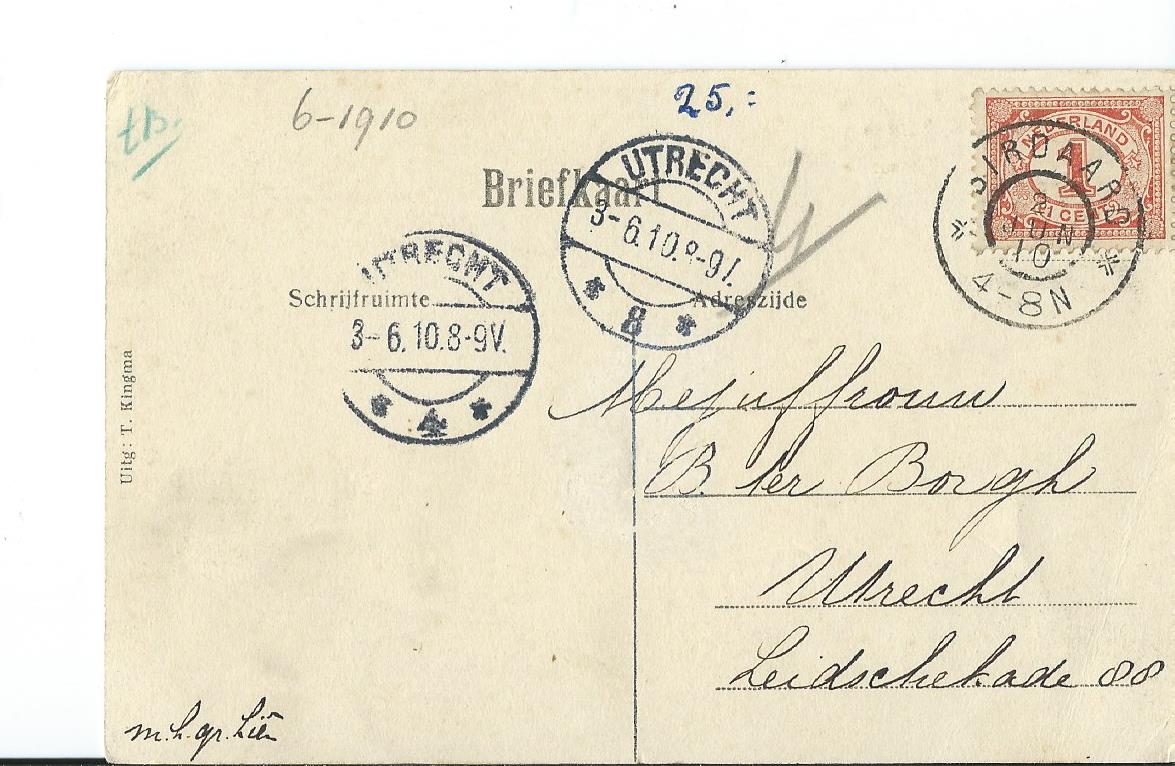 6-1910
25,:
Briefkaart
UTRECHT
3-6.10.8-9V.
8
UTRECHT
3-6.10.8-9V.
4
NEDERLAND
1
1 CENT
BIRDAARD
2
JUN
10
4-8N
Schrijfruimte
Adreszijde
Uitg: T. Kingma
Mejuffrouw
B. ter Borgh
Utrecht
Leidschekade 88
m.h.gr. Liên